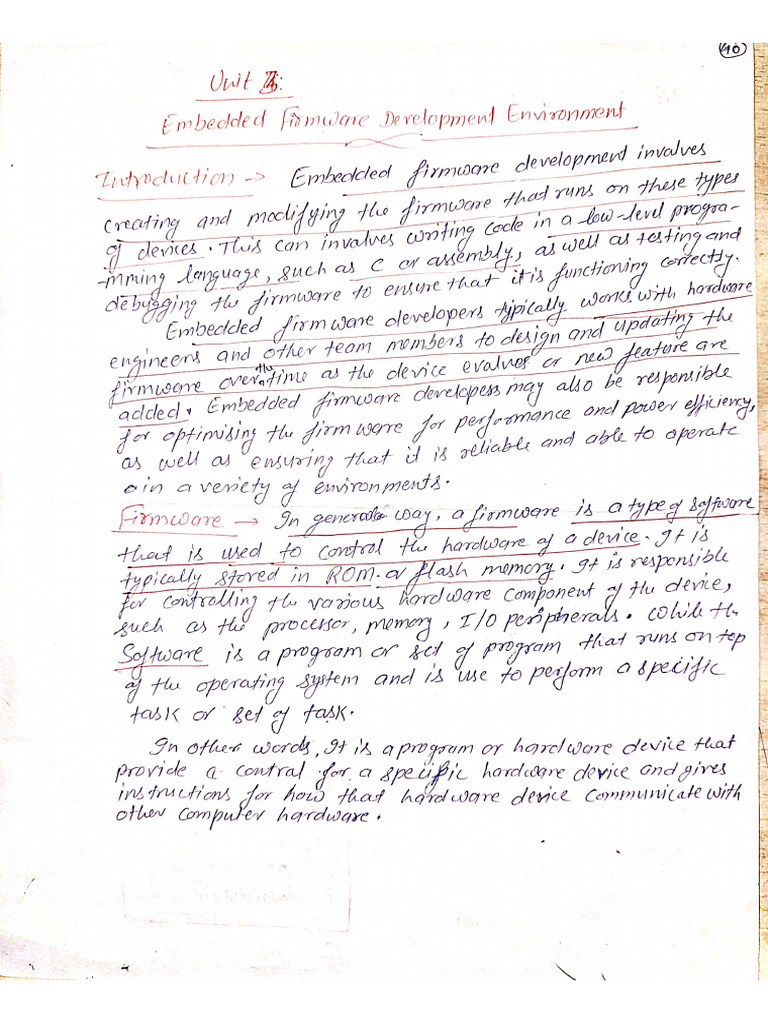 40
Unit :
Embedded Firmware Development Environment
Introduction → Embedded firmware development involves
creating and modifying the firmware that runs on these types
of devices. This can involves writing code in a low-level progra-
-mming language, such as C or assembly, as well as testing and
debugging the firmware to ensure that it is functioning correctly.
Embedded firmware developers typically works with hardware
engineers and other team members to design and updating the
firmware over the time as the device evalves or new feature are
added. Embedded firmware developess may also be responsible
for optimising the firmware for performance and power efficiency,
as well as ensuring that it is reliable and able to operate
in a veriety of environments.
Firmware → In general way, a firmware is a type of software
that is used to control the hardware of a device. It is
typically stored in ROM or flash memory. It is responsible
for controlling the various hardware component of the device,
such as the processor, memory, I/O peripherals. While the
Software is a program or set of program that runs on top
of the operating system and is use to perform a specific
task or set of task.
In other words, It is a program or hardware device that
provide a control for a specific hardware device and gives
instructions for how that hardware device communicate with
other computer hardware.